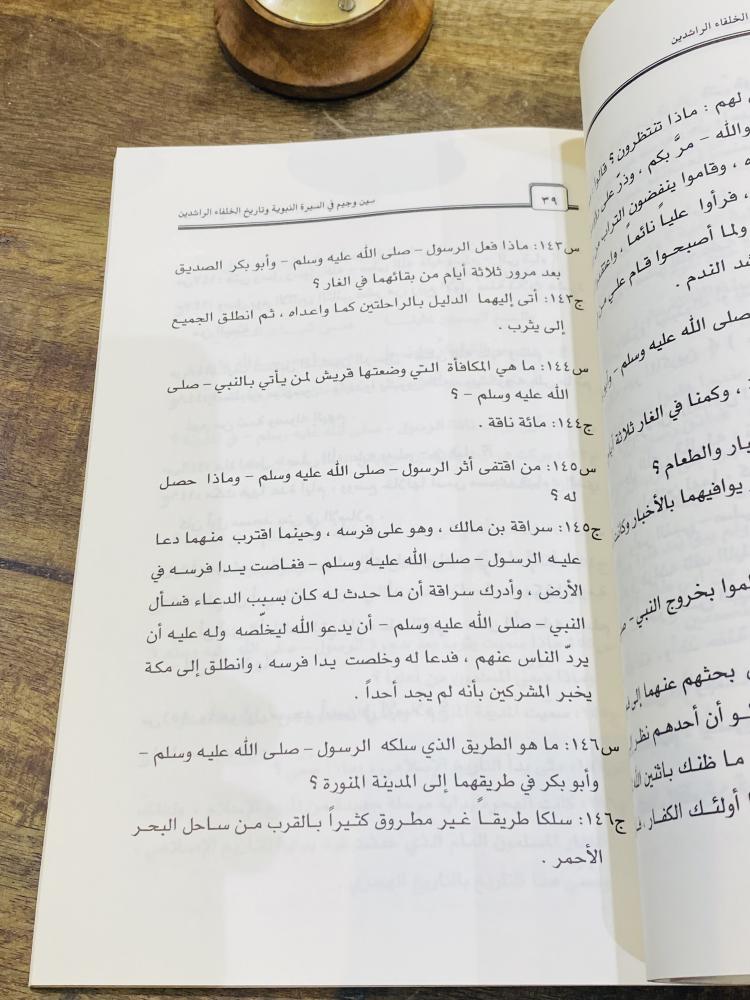 سين وجيم في السيرة النبوية وتاريخ الخلفاء الراشدين
٣٩
س١٤٣: ماذا فعل الرسول – صلى الله عليه وسلم – وأبو بكر الصديق
بعد مرور ثلاثة أيام من بقائهما في الغار ؟
ج١٤٣: أتى إليهما الدليل بالراحلتين كما واعداه ، ثم انطلق الجميع
إلى يثرب .
س١٤٤: ما هي المكافأة التي وضعتها قريش لمن يأتي بالنبي – صلى
الله عليه وسلم – ؟
ج١٤٤: مائة ناقة .
س١٤٥: من اقتفى أثر الرسول – صلى الله عليه وسلم – وماذا حصل
له ؟
ج١٤٥: سراقة بن مالك ، وهو على فرسه ، وحينما اقترب منهما دعا
عليه الرسول – صلى الله عليه وسلم – فغاصت يدا فرسه في
الأرض ، وأدرك سراقة أن ما حدث له كان بسبب الدعاء فسأل
النبي – صلى الله عليه وسلم – أن يدعو الله ليخلّصه وله عليه أن
يردّ الناس عنهم ، فدعا له وخلصت يدا فرسه ، وانطلق إلى مكة
يخبر المشركين بأنه لم يجد أحداً .
س١٤٦: ما هو الطريق الذي سلكه الرسول – صلى الله عليه وسلم –
وأبو بكر في طريقهما إلى المدينة المنورة ؟
ج١٤٦: سلكا طريقاً غير مطروق كثيراً بالقرب من ساحل البحر
الأحمر .
الخلفاء الراشدين
لهم : ماذا تنتظرون ؟ قالوا
والله – مرَّ بكم ، وذرّ على
، وقاموا ينفضون التراب
، فرأوا علياً نائماً ،
ولما أصبحوا قام علي
الندم .
صلى الله عليه وسلم –
، وكمنا في الغار ثلاثة
والطعام ؟
يوافيهما بالأخبار
بخروج النبي –
بحثهم عنهما
أن أحدهم
ما ظنك باثنين
أولئك الكفار ،